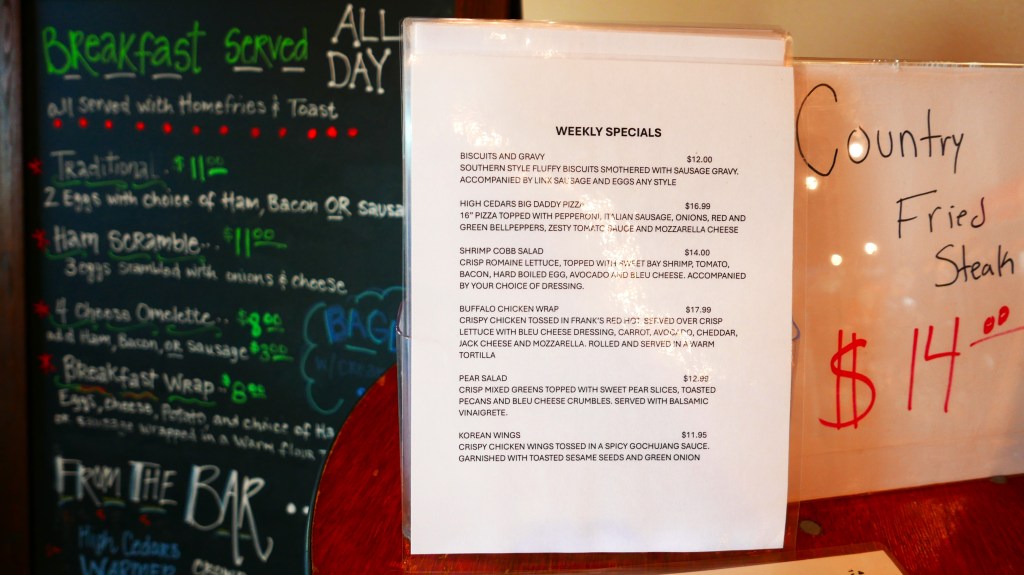 Breakfast Served ALL DAY
all served with Homefries & Toast
Traditional.. $11.00
2 Eggs with choice of Ham, Bacon OR Sausa
Ham Scramble... $11.00
3 eggs scrambled with onions & cheese
4 Cheese Omelette... $8.00
add Ham, Bacon, OR Sausage $3.00
Breakfast Wrap. $8.00
Eggs, Cheese, Potato, and choice of Ha
or Sausage wrapped in a warm flour T
FROM THE BAR...
High Cedars
WARMER
BAG
WEEKLY SPECIALS
BISCUITS AND GRAVY $12.00
SOUTHERN STYLE FLUFFY BISCUITS SMOTHERED WITH SAUSAGE GRAVY.
ACCOMPANIED BY LINK SAUSAGE AND EGGS ANY STYLE
HIGH CEDARS BIG DADDY PIZZA $16.99
16" PIZZA TOPPED WITH PEPPERONI, ITALIAN SAUSAGE, ONIONS, RED AND
GREEN BELLPEPPERS, ZESTY TOMATO SAUCE AND MOZZARELLA CHEESE
SHRIMP COBB SALAD $14.00
CRISP ROMAINE LETTUCE, TOPPED WITH SWEET BAY SHRIMP, TOMATO,
BACON, HARD BOILED EGG, AVOCADO AND BLEU CHEESE. ACCOMPANIED
BY YOUR CHOICE OF DRESSING.
BUFFALO CHICKEN WRAP $17.99
CRISPY CHICKEN TOSSED IN FRANK'S RED HOT. SERVED OVER CRISP
LETTUCE WITH BLEU CHEESE DRESSING, CARROT, AVOCADO, CHEDDAR,
JACK CHEESE AND MOZZARELLA. ROLLED AND SERVED IN A WARM
TORTILLA
PEAR SALAD $12.99
CRISP MIXED GREENS TOPPED WITH SWEET PEAR SLICES, TOASTED
PECANS AND BLEU CHEESE CRUMBLES. SERVED WITH BALSAMIC
VINAIGRETE.
KOREAN WINGS $11.95
CRISPY CHICKEN WINGS TOSSED IN A SPICY GOCHUJANG SAUCE.
GARNISHED WITH TOASTED SESAME SEEDS AND GREEN ONION
Country
Fried
Steak
$14.00